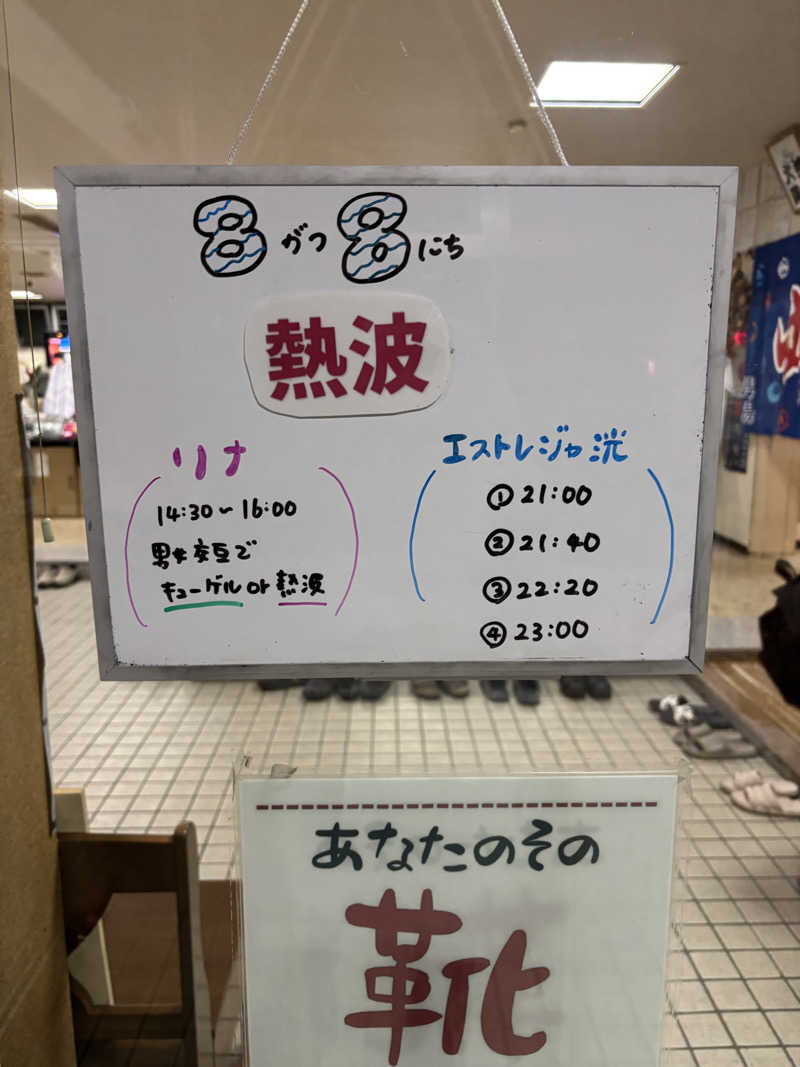 8がつ8にち
熱波
リナ
14:30~16:00
男女交互で
キューゲル or 熱波
エストレジャ洸
① 21:00
② 21:40
③ 22:20
④ 23:00
あなたのその
靴